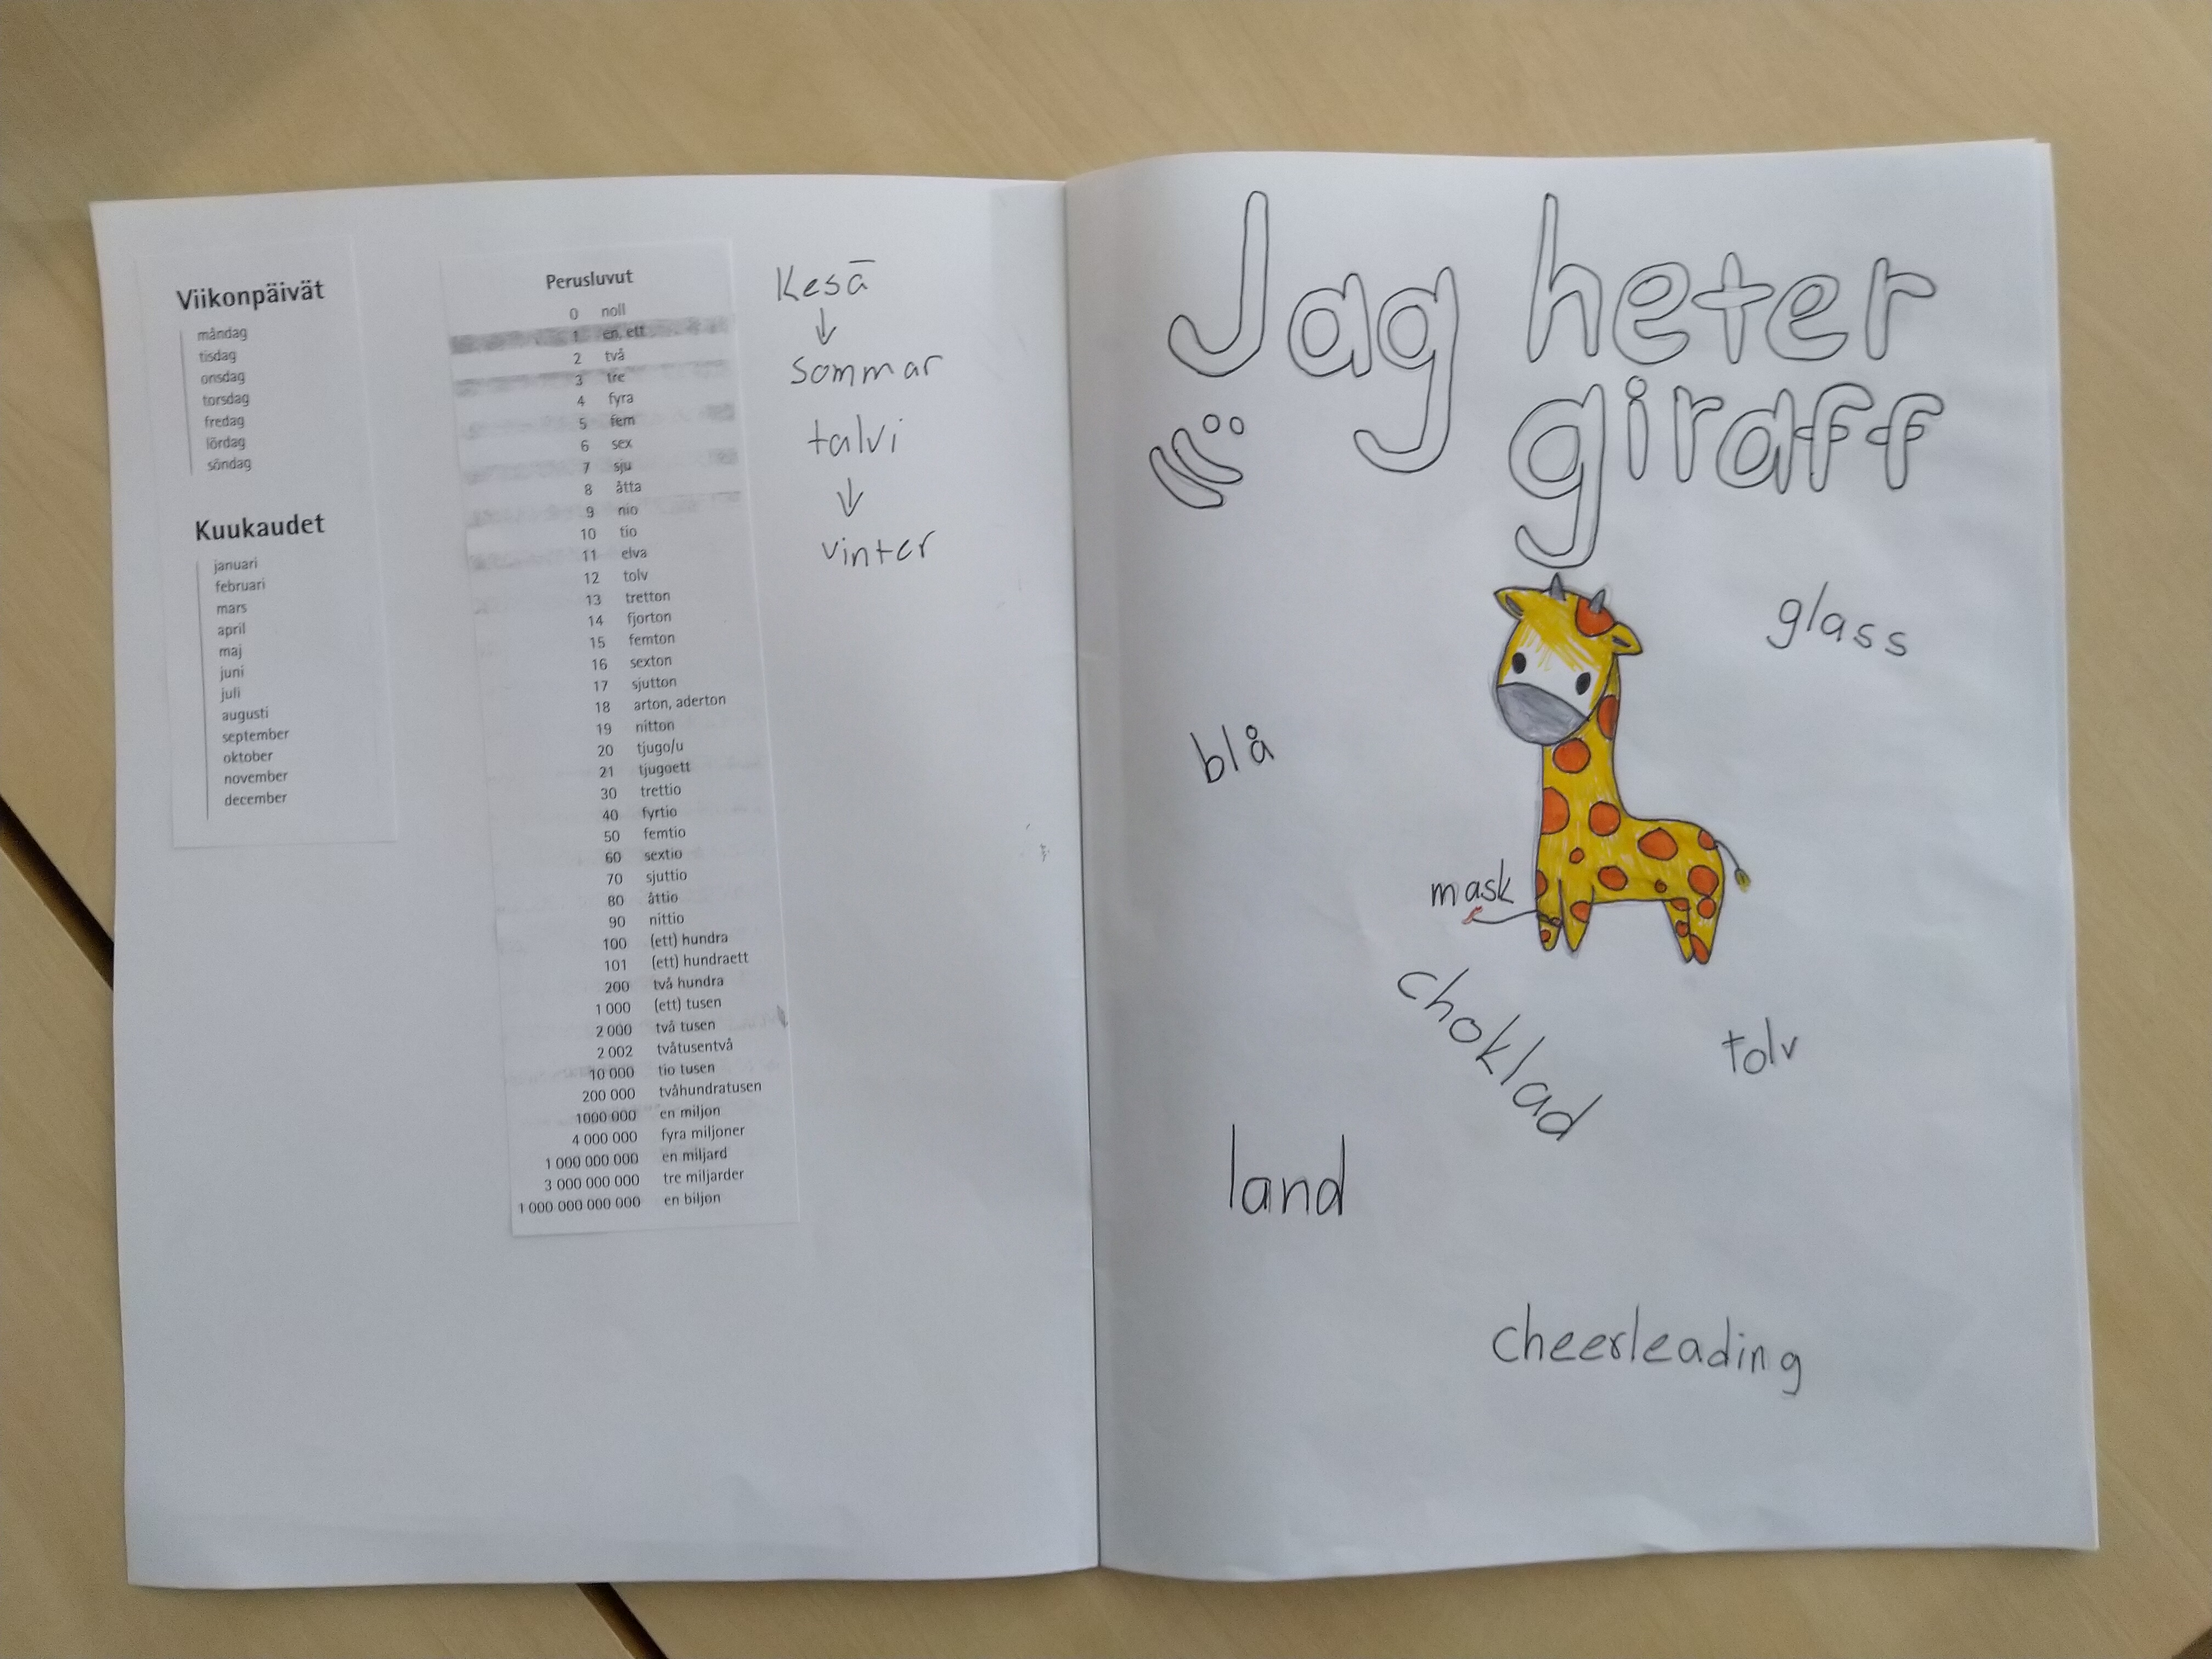 Viikonpäivät
måndag
tisdag
onsdag
torsdag
fredag
lördag
söndag
Kuukaudet
januari
februari
mars
april
maj
juni
juli
augusti
september
oktober
november
december
Perusluvut
0 noll
1 en, ett
2 två
3 tre
4 fyra
5 fem
6 sex
7 sju
8 åtta
9 nio
10 tio
11 elva
12 tolv
13 tretton
14 fjorton
15 femton
16 sexton
17 sjutton
18 arton, aderton
19 nitton
20 tjugo/u
21 tjugoett
30 trettio
40 fyrtio
50 femtio
60 sextio
70 sjuttio
80 åttio
90 nittio
100 (ett) hundra
101 (ett) hundraett
200 två hundra
1 000 (ett) tusen
2 000 två tusen
2 002 tvåtusentvå
10 000 tio tusen
200 000 tvåhundratusen
1000 000 en miljon
4 000 000 fyra miljoner
1 000 000 000 en miljard
3 000 000 000 tre miljarder
1 000 000 000 000 en biljon
Kesä
↓
sommar
talvi
↓
vinter
Jag heter
giraff
glass
blå
mask
choklad
tolv
land
cheerleading